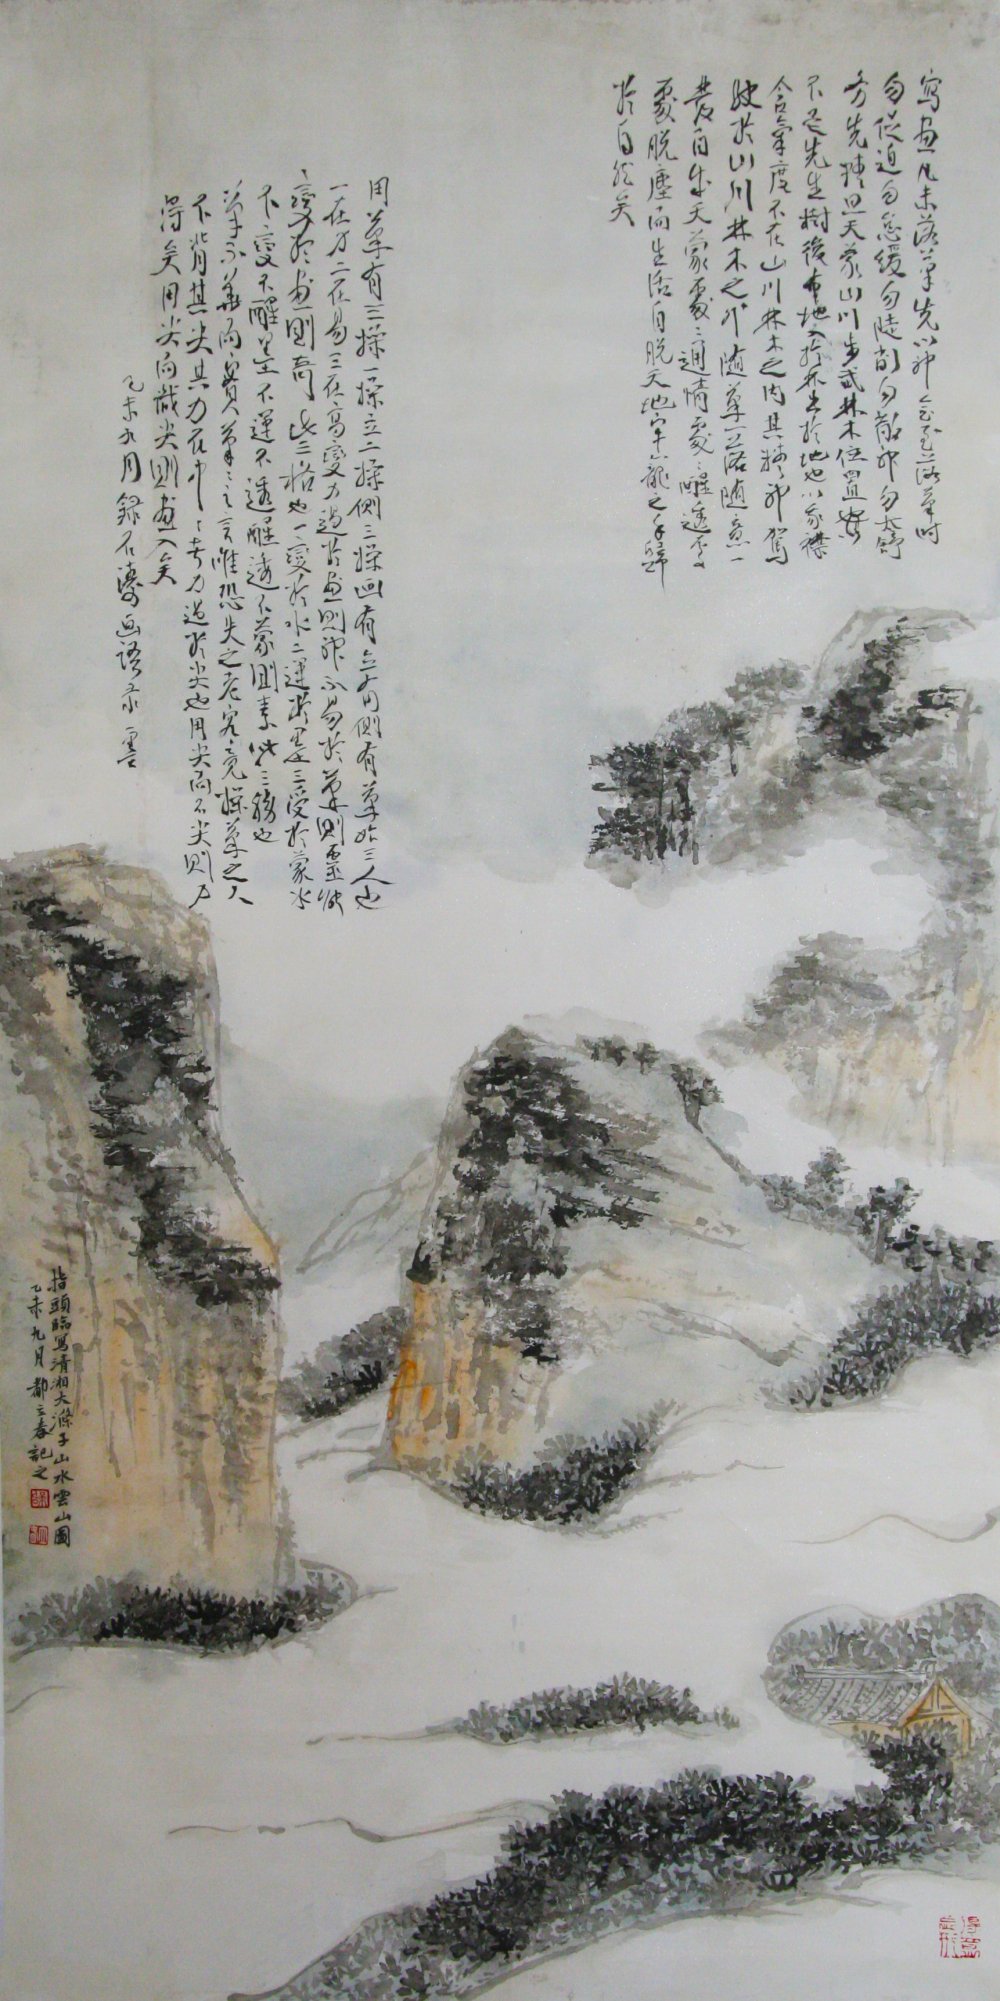 寫畫凡未落筆先以神會至落筆時
勿促迫勿怠緩勿陡削勿散神勿太舒
務先精思天蒙山川步武林木位置
不是先生樹後布地入於林出於地也以我襟
含氣度不在山川林木之內其精神駕
馭於山川林木之外隨筆一落隨意一
發自成天蒙處處通情處處醒透處
處脫塵而生活自脫天地牢籠之手歸
於自然矣
用筆有三操一操立二操側三操画有立有側有画始三入也
一在力二在易三在變力過於畫則神不易於筆則靈能
變於畫則奇此三格也一變於水二運於墨三受於蒙水
不變不醒墨不運不透醒透不蒙則素此三勝也
筆不華而實筆筆之言唯恐失之老究竟操筆之人
不背其尖其力在中中者力過於尖也用尖而不尖則力
得矣用尖而識尖則畫入矣
乙未九月錄石濤画語录
指頭臨寫清湘大滌子山水雲山圖
乙未九月都立春記之